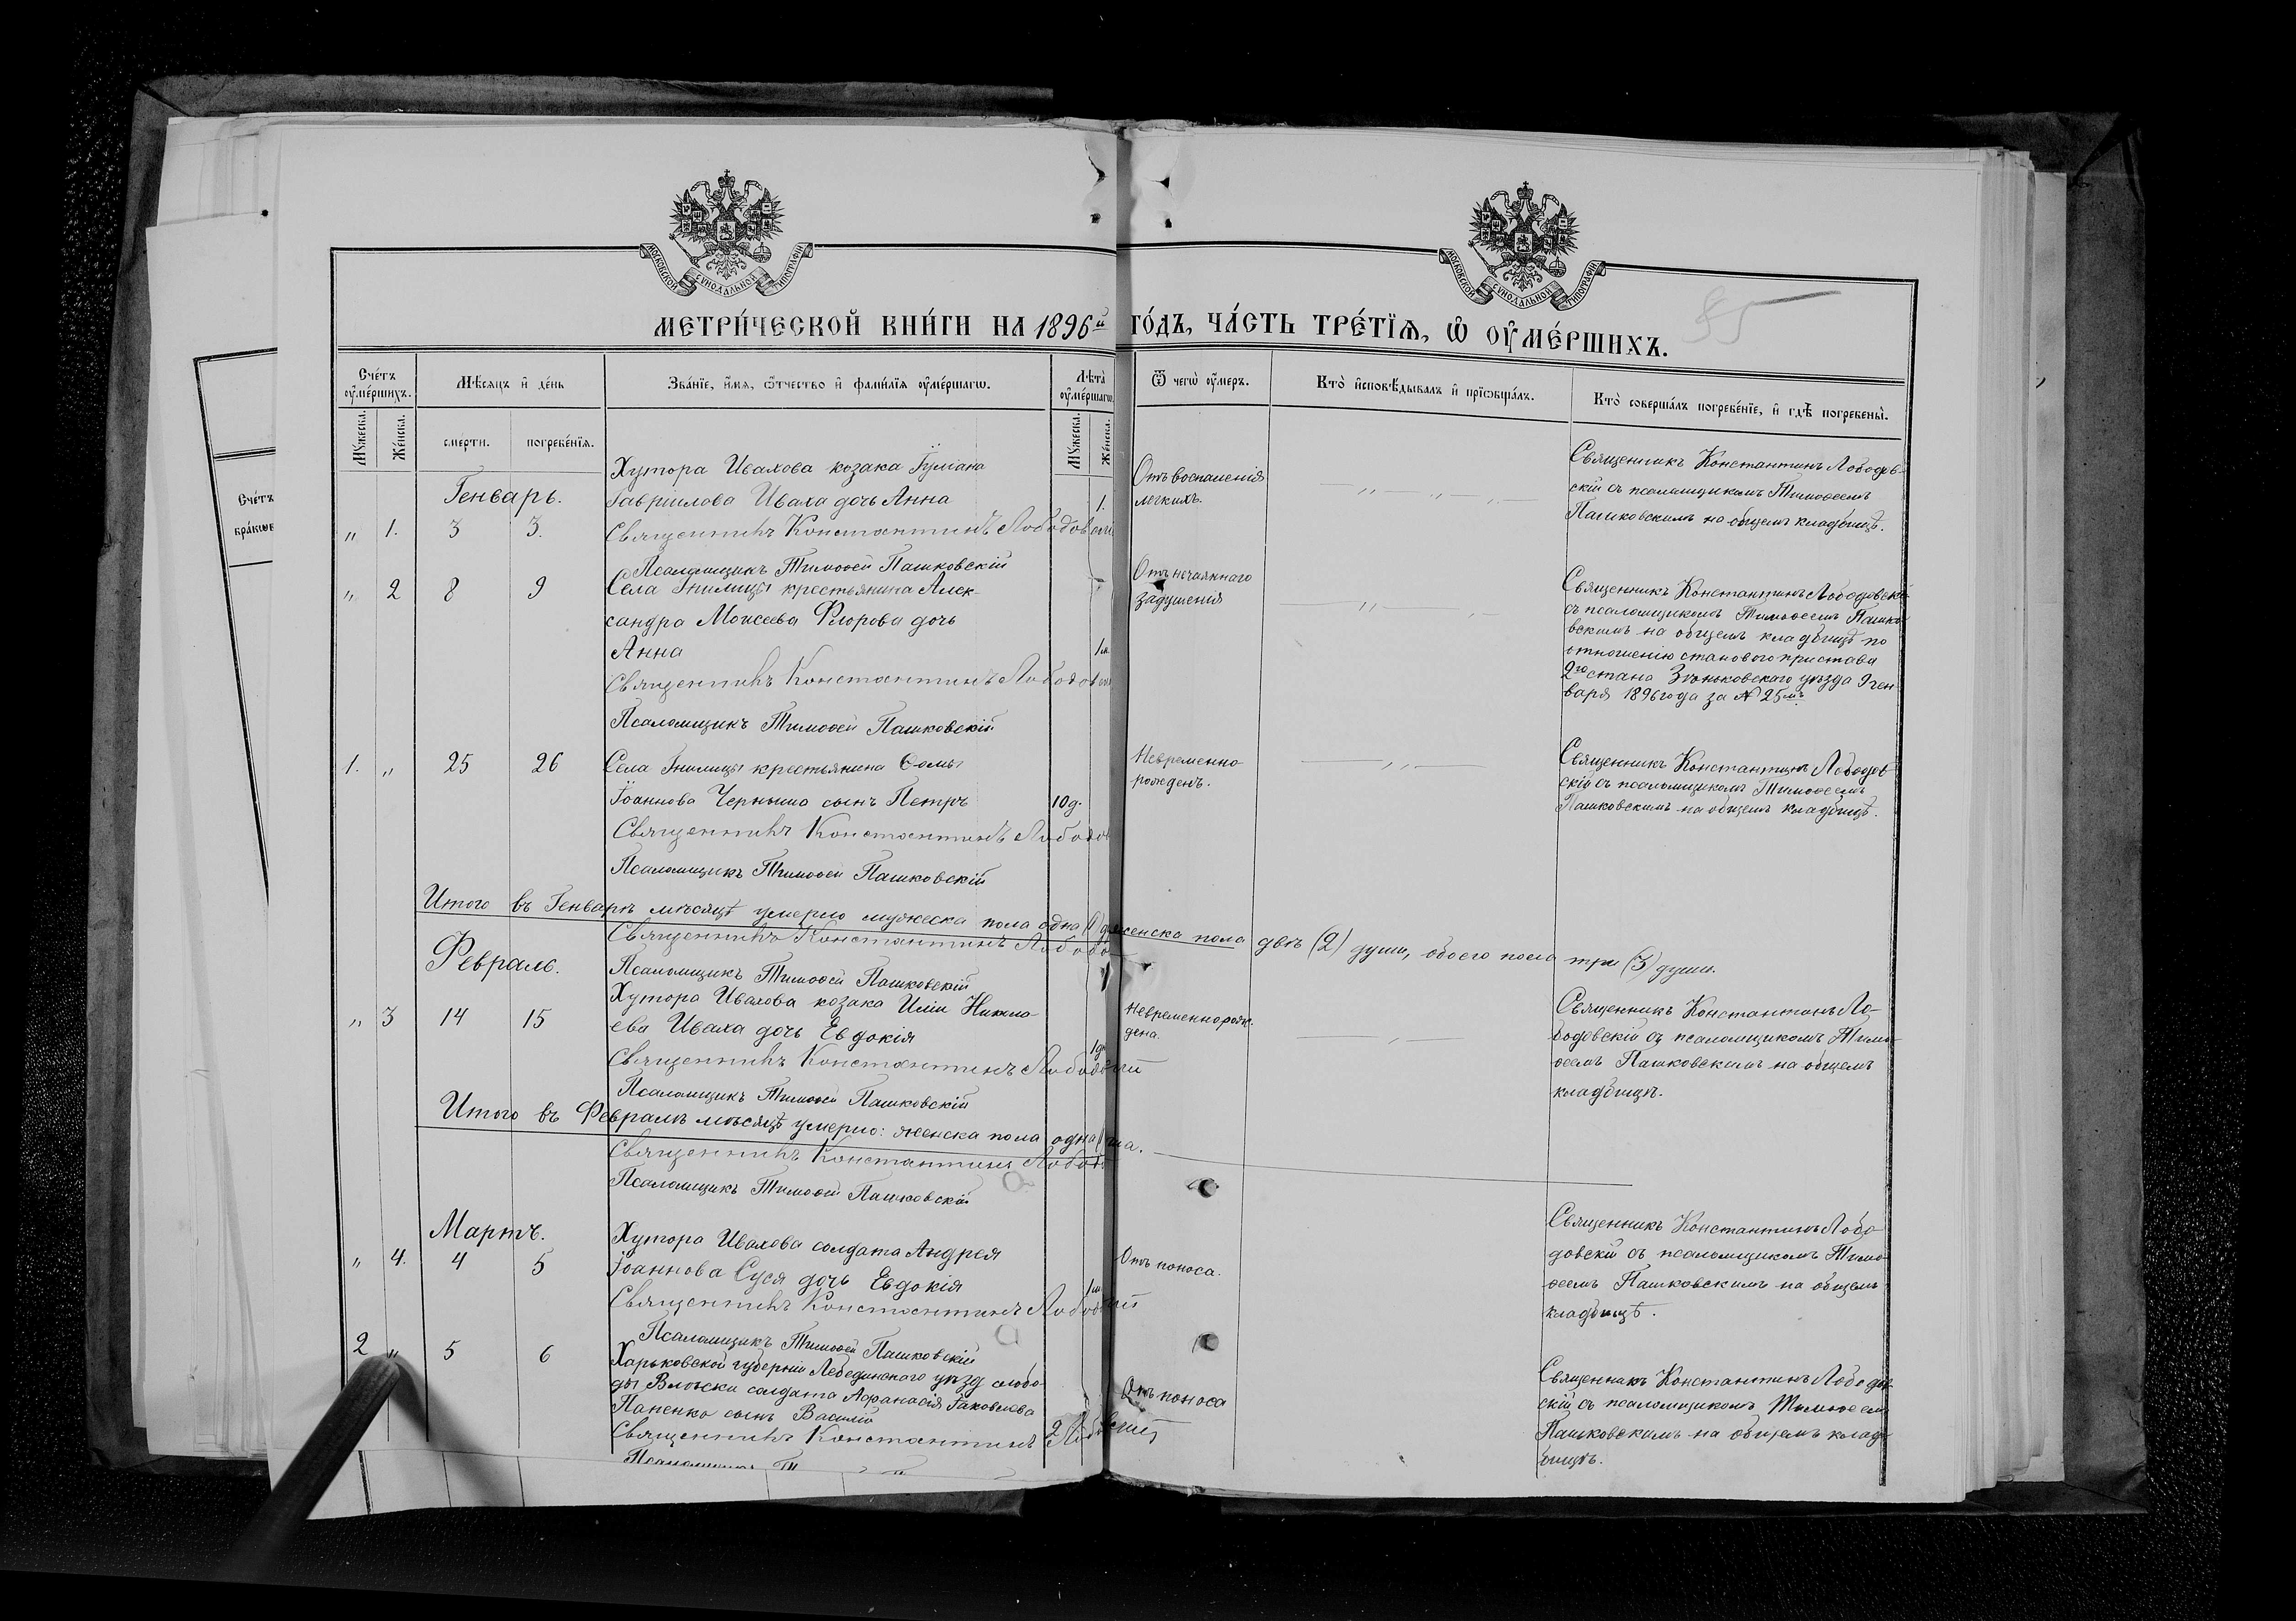 МОСКОВСКОЙ СѴНОДАЛЬНОЙ ТИПОГРАФІИ
МОСКОВСКОЙ СѴНОДАЛЬНОЙ ТИПОГРАФІИ
85
МЕТРИ́ЧЕСКОЙ КНИ́ГИ НА 1896й ГО́ДЪ, ЧА́СТЬ ТРЕ́ТЇѦ, Ѡ҆ ОУ҆МЕ́РШИХЪ.
Сче́тъ оу҆ме́ршихъ.
Мѣ́сяцъ и҆ де́нь
Зва́нїе, и҆́мя, ѻ҆́тчество и҆ фами́лїя оу҆ме́ршагѡ.
Лѣ́та оу҆ме́ршагѡ.
Ѿ чегѡ̀ оу҆́меръ.
Кто̀ и҆сповѣ́дывалъ и҆ прїѡбща́лъ.
Кто̀ соверша́лъ погребе́нїе, и҆ гдѣ̀ погребены̀.
Мꙋ́жеска. Же́нска.
сме́рти. погребе́нїя.
Мꙋ́жеска. Же́нска.
Сче́тъ
бра́кѡв
Генварь.
" 1. 3 3.
Хутора Ивахова козака Іуліана
Гавриилова Иваха дочь Анна
1.
Священникъ Константинъ Лободовскій
Псаломщикъ Тимоѳей Пашковскій
Отъ воспаленія
легкихъ.
Священникъ Константинъ Лободов-
скій съ псаломщикомъ Тимоѳеемъ
Пашковскимъ на общемъ кладбищѣ.
" 2 8 9
Села Гнилицы крестьянина Алек-
сандра Моисеева Флорова дочь
Анна
1 м.
Священникъ Константинъ Лободовскій
Псаломщикъ Тимоѳей Пашковскій
Отъ нечаяннаго
задушенія
Священникъ Константинъ Лободовскій
съ псаломщикомъ Тимоѳеемъ Пашко-
вскимъ на общемъ кладбищѣ по
отношенію станового пристава
2го стана Зѣньковскаго уѣзда 9 ген-
варя 1896 года за № 25мъ.
1. " 25 26
Села Гнилицы крестьянина Ѳомы
Іоаннова Черныша сынъ Петръ
10 д.
Священникъ Константинъ Лободов
Псаломщикъ Тимоѳей Пашковскій
Невременно-
рожденъ.
Священникъ Константинъ Лободов-
скій съ псаломщикомъ Тимоѳеемъ
Пашковскимъ на общемъ кладбищѣ.
Итого въ Генварѣ мѣсяцѣ умерло мужеска пола одна (1) женска пола двѣ (2) души, обоего пола три (3) души.
Священникъ Константинъ Лободо
Псаломщикъ Тимоѳей Пашковскій
Февраль.
" 3 14 15
Хутора Ивахова козака Иліи Никола-
ева Иваха дочь Евдокія
1 д.
Священникъ Константинъ Лободовскій
Псаломщикъ Тимоѳей Пашковскій
Невременнорож-
дена.
Священникъ Константинъ Ло-
бодовскій съ псаломщикомъ Тимо-
ѳеемъ Пашковскимъ на общемъ
кладбищѣ.
Итого въ Февралѣ мѣсяцѣ умерло: женска пола одна
Священникъ Константинъ Лободо
Псаломщикъ Тимоѳей Пашковскій
Мартъ.
" 4. 4 5
Хутора Ивахова солдата Андрея
Іоаннова Суся дочь Евдокія
Священникъ Константинъ Лободовскій
Псаломщикъ Тимоѳей Пашковскій
Отъ поноса.
Священникъ Константинъ Лобо-
довскій съ псаломщикомъ Тимо-
ѳеемъ Пашковскимъ на общемъ
кладбищѣ.
2 " 5 6
Харьковской губерніи Лебединскаго уѣзд слобо-
ды солдата Аѳанасія Іаковлева
Папенко сынъ Василій
2
Священникъ Константинъ Лободовскій
Псаломщикъ
Отъ поноса
Священникъ Константинъ Лободов-
скій съ псаломщикомъ Тимоѳеемъ
Пашковскимъ на общемъ клад-
бищѣ.